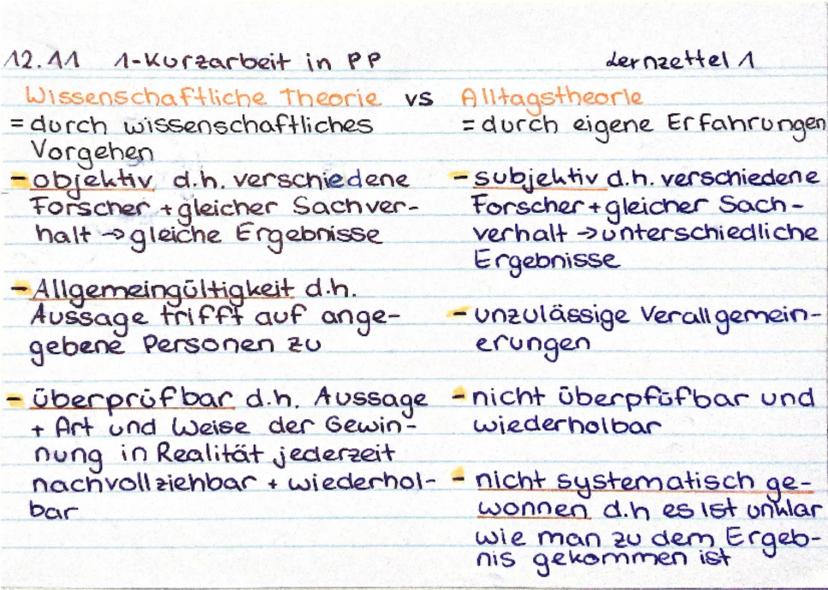 12.11 1-Kurzarbeit in PP Lernzettel 1
Wissenschaftliche Theorie vs Alltagstheorie
= durch wissenschaftliches
Vorgehen
- objektiv d.h. verschiedene
Forscher + gleicher Sachver-
halt → gleiche Ergebnisse
- Allgemeingültigkeit d.h.
Aussage trifft auf ange-
gebene Personen zu
- überprüfbar d.h. Aussage
+ Art und Weise der Gewin-
nung in Realität jederzeit
nachvollziehbar + wiederhol-
bar
= durch eigene Erfahrungen
- subjektiv d.h. verschiedene
Forscher + gleicher Sach-
verhalt → unterschiedliche
Ergebnisse
- unzulässige Verallgemein-
erungen
- nicht überpfüfbar und
wiederholbar
- nicht systematisch ge-
wonnen d.h es ist unklar
wie man zu dem Ergeb-
nis gekommen ist